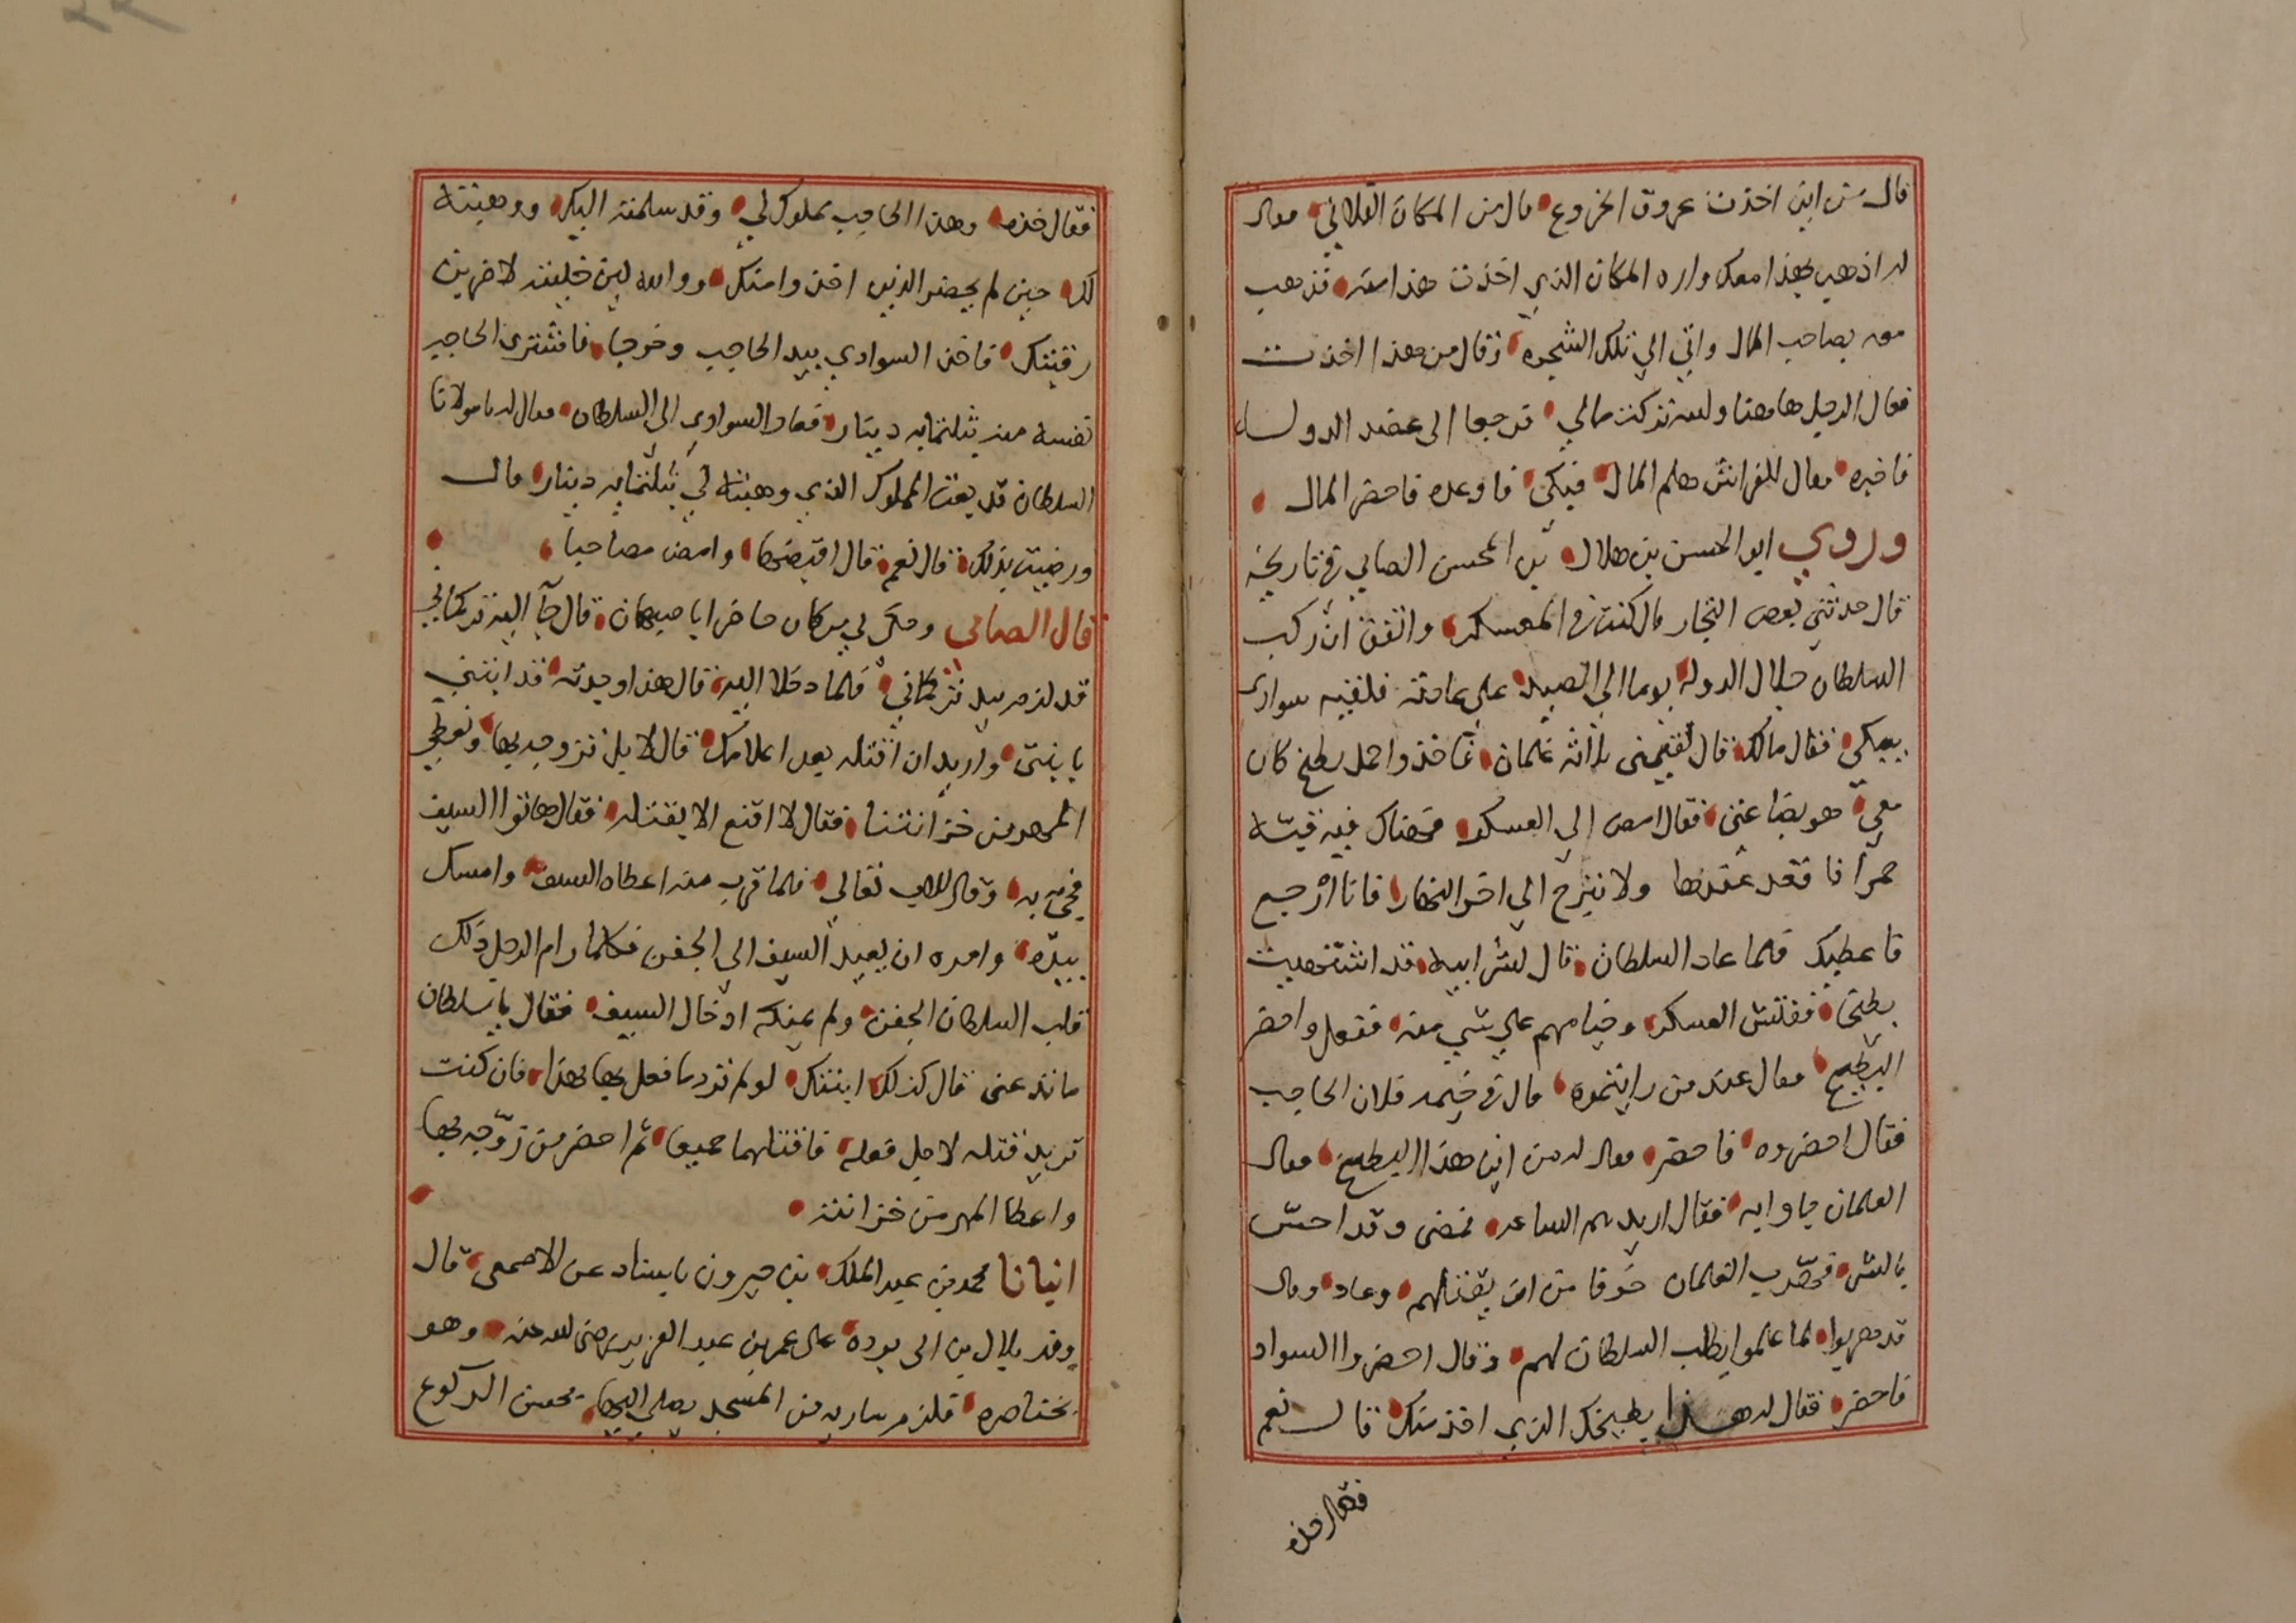 قال من اين اخذت عروق الخروع قال من المكان الفلاني فقال
له اذهب بهذا معك واره المكان الذي اخذت هذا منه فذهب
معه بصاحب المال واتي الي تلك الشجره وقال من هذا اخذت
فقال الرجل هاهنا والله تركت مالي فرجعا الى عضد الدوله
فاخبره فقال للفراش هلم المال فبكي فاوعده فاحضر المال
وروي ابو الحسن بن هلال بن المحسن الصابي في تاريخه
قال حدثني بعض التجار قال كنت في المعسكر واتفق ان ركب
السلطان جلال الدوله يوما الي الصيد علي عادته فلقيه سوادي
يبكي فقال مالك قال لقيني ثلاثه غلمان فاخذوا حمل بطيخ كان
معي هو بضاعتي فقال امض الي العسكر فهناك قبه
حمرا فاقعد عندها ولا تبرح الي اخر النهار فانا ارجع
فاعطيك فلما عاد السلطان قال لشرابيه قد اشتهيت
بطيخا ففتش العسكر وخيامهم علي شي منه ففعل واحضر
البطيخ فقال عند من رايتموه قال في خيمه فلان الحاجب
فقال احضروه فاحضر فقال له من اين هذا البطيخ فقال
الغلمان جاوا به فقال اريدهم الساعه فمضى وقد احس
بالشر فهرب الغلمان خوفا من ان يقتلهم وعاد وقال
قد هربوا لما علموا بطلب السلطان لهم فقال احضروا السوادي
فاحضر فقال له هذا بطيخك الذي اخذ منك قال نعم
فقال خذه
فقال خذه وهذا الحاجب مملوك لي وقد سلمته اليك ووهبته
لك حين لم يحضر الذين اخذوا منك ووالله لين خليته لاضربن
رقبتك فاخذ السوادي بيد الحاجب وخرجا فاشترى الحاجب
نفسه منه بثلثمايه دينار فعاد السوادي الي السلطان فقال له يا مولانا
السلطان قد بعت المملوك الذي وهبته لي بثلثمايه دينار قال
ورضيت بذلك قال نعم قال اقبضها وامض مصاحبا
قال الصابي وحكى لي من كان حاضرا باصبهان قال جآ اليه تركماني
قد لزم بيد تركماني فلما دخلا اليه قال هذا وجدته قد ابتني
بابنتى واريد ان اقتله بعد اعلامك قال لا بل تزوجه بها ونعطي
المهر من خزانتنا فقال لا اقنع الا بقتله فقال هاتوا السيف
فجيء به وقال للاب تعالي فلما قرب منه اعطاه السيف وامسك
بيده وامره ان يعيد السيف الى الجفن فكلما رام الرجل ذلك
قلب السلطان الجفن ولم يمكنه ادخال السيف فقال يا سلطان
ما تدعنى قال كذلك ابنتك لو لم ترد ما فعل بها هذا فان كنت
تريد قتله لاجل فعله فاقتلهما جميعا ثم احضر من زوجه بها
واعطا المهر من خزانته
انبانا محمد بن عبد الملك بن خيرون باسناد عن الاصمعي قال
وفد بلال بن ابي برده على عمر بن عبد العزيز رضي الله عنه وهو
بخناصره فلزم ساريه من المسجد يصلي اليها يحسن الركوع